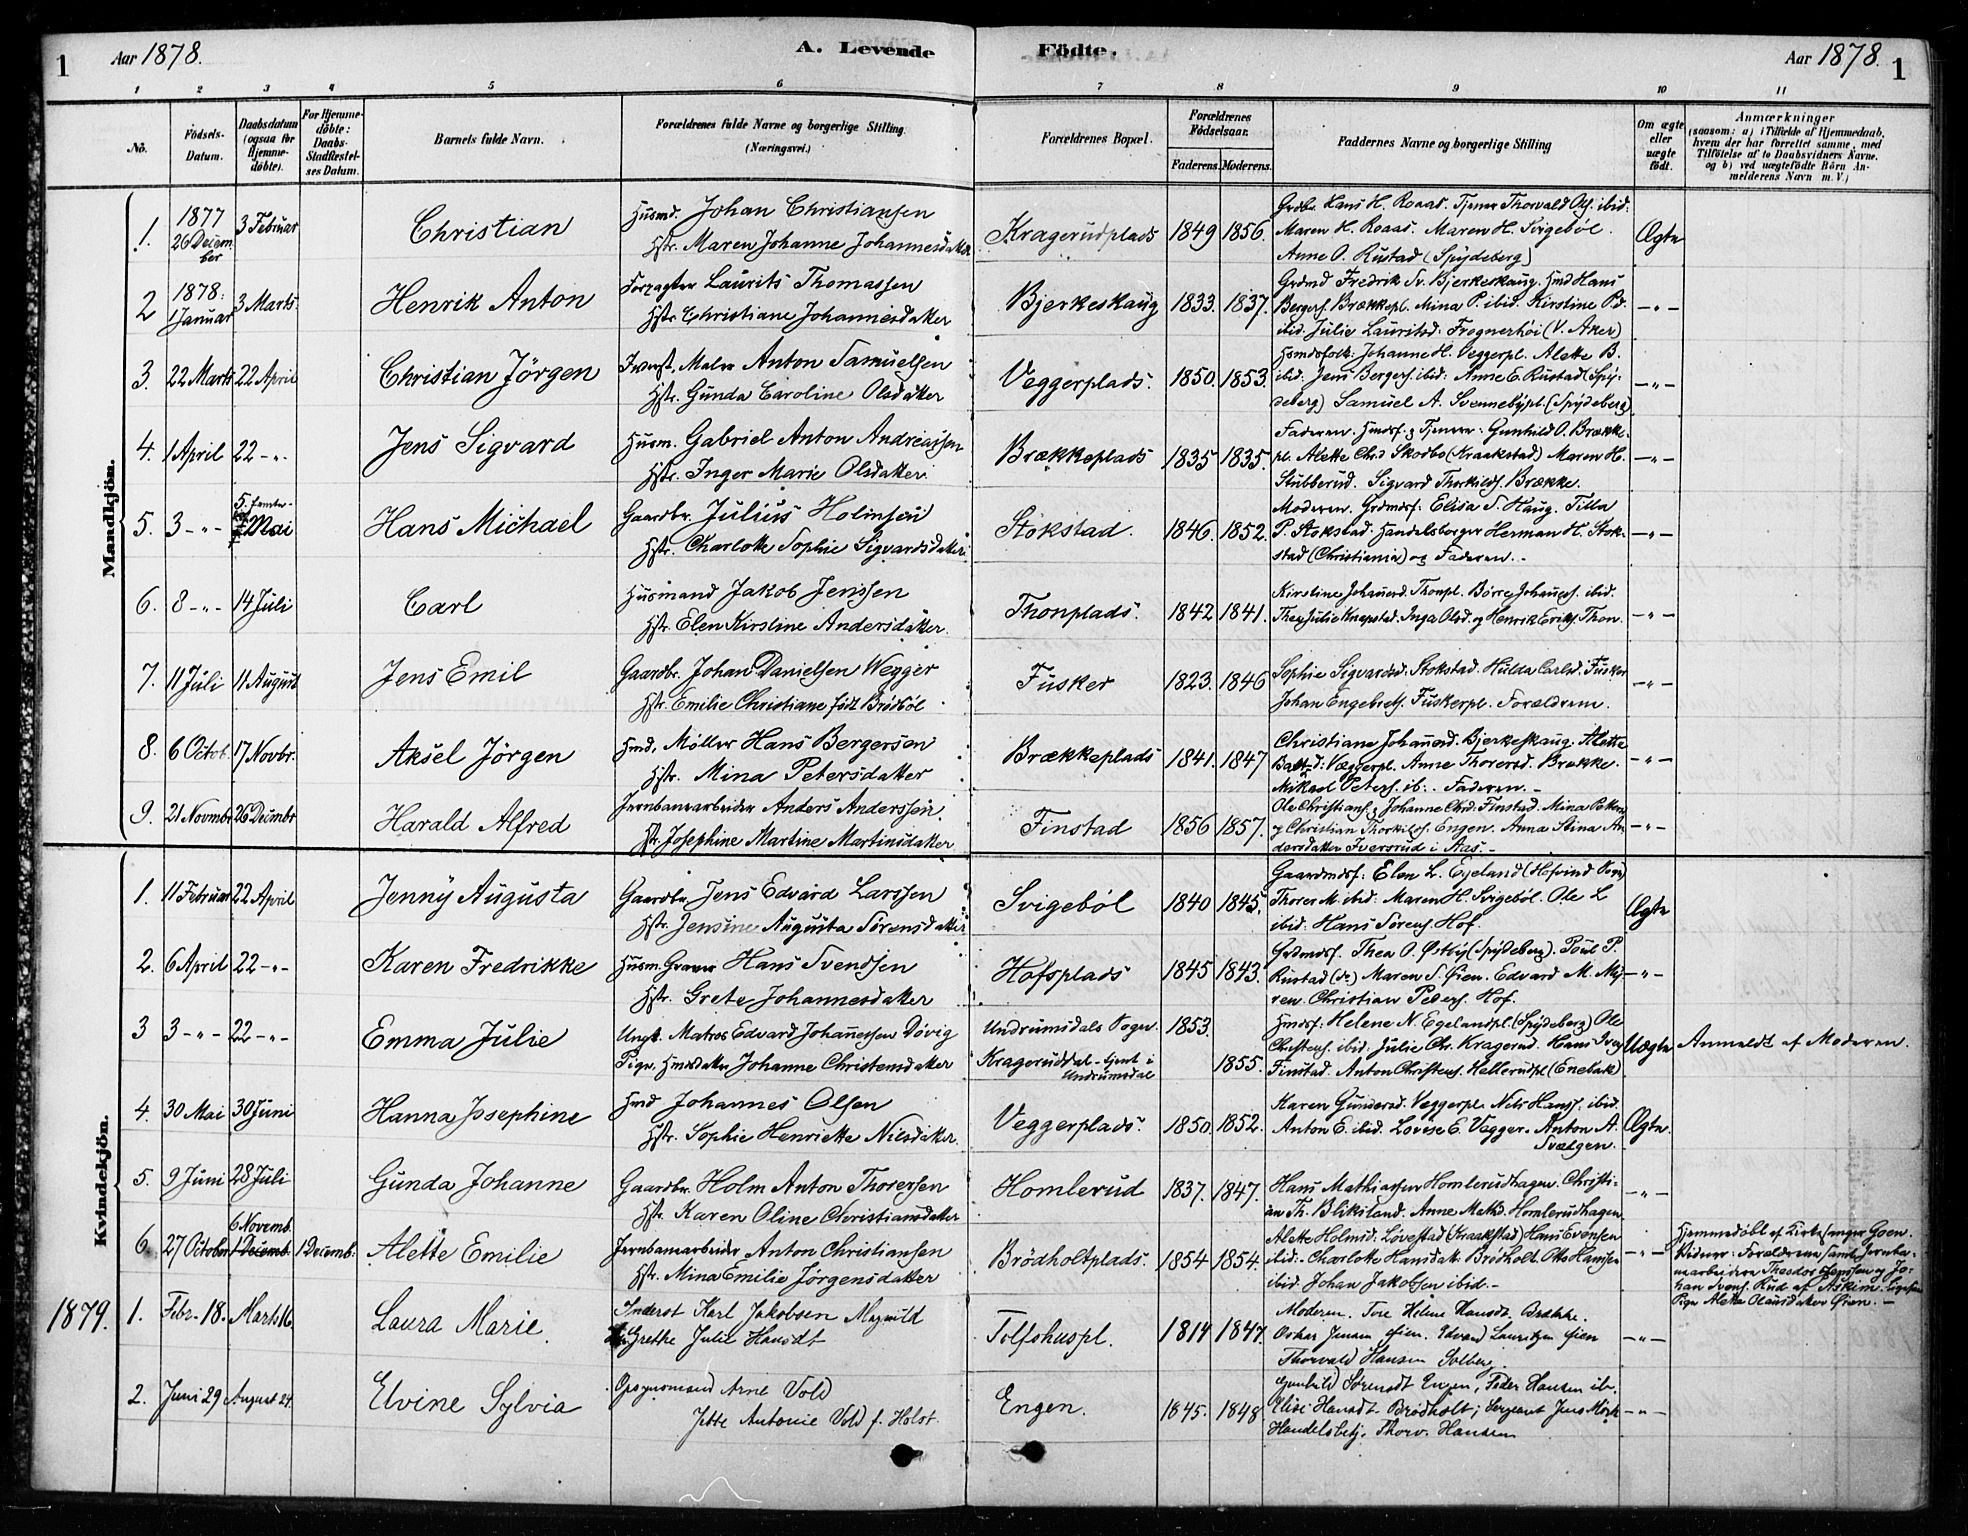 1 Aar 1878. A. Levende Födte. Aar 1878. 1
1 2 3 4 5 6 7 8 9 10 11
Nô. Födsels-Datum. Daabsdatum (ogsaa for Hjemmedöbte). For Hjemmedöbte: Daabs-Stadfæstelses Datum. Barnets fulde Navn. Forældrenes fulde Navne og borgerlige Stilling. (Næringsvei.) Forældrenes Bopæl. Forældrenes Födselsaar. Faderens. Moderens. Faddernes Navne og borgerlige Stilling Om ægte eller uægte födt. Anmærkninger
(saasom: a) i Tilfælde af Hjemmedaab, hvem der har forrettet samme, med Tilföielse af to Daabsvidners Navne, og b) ved uægtefödte Börn Anmelderens Navn m. V.)
Mandkjön.
1. 1877 26 December 3 Februar Christian Husmd. Johan Christiansen
Hstr. Maren Johanne Johannesdatter Kragerudplads 1849 1856. Ægte
Grdbr. Hans H. Roaas. Tjener Thorvald Ols. ibid:
Maren H. Roaas. Maren H. Svigebøl.
Anne O. Rustad (Spydeberg)
2 1878: 1 Januar 3 Marts. Henrik Anton Forpagter Laurits Thomassen
Hstr. Christiane Johannesdatter Bjerkeskaug 1833. 1837. —"—
Grdmd Fredrik Sv. Bjerkeskaug. Hmd Hans
Bergers. Brækkepl. Mina P. ibid. Kirstine Pd.
ibid. Julie Lauritsd: Frognerhöi (V. Aker)
3. 22 Marts 22 April Christian Jörgen Inderst, Maler Anton Samuelsen
Hstr. Gunda Caroline Olsdatter Veggerplads. 1850. 1853. —"—
Hsmdsfolk: Johanne H. Veggerpl. Alette B.
ibid. Jens Bergers. ibid: Anne E. Rustad (Spydeberg)
Samuel A. Svennebypl. (Spydeberg)
4. 1 April 22 —"— Jens Sigvard Husm. Gabriel Anton Andreassen
Hstr. Inger Marie Olsdatter. Brækkeplads 1835 1835. —"—
Faderen. Hmdsf. & Tjenere: Gunhild O. Brækkepl.
Alette Chrd Skodbo (Kraakstad) Maren H.
Stubberud. Sigvard Thorkilds. Brække.
5. 3 —"— Mai Hans Michael Gaardbr. Julius Holmsen
Hstr. Charlotte Sophie Sigvardsdatter. Stokstad. 1846. 1852. —"—
Moderen. Grdmdsf: Elisa S. Haug. Tilla
P. Stokstad. Handelsborger Herman H. Stokstad
(Christiania) og Faderen.
6. 8 —"— 14 Juli Carl Husmand Jakob Jenssen
Hstr. Elen Kirstine Andersdatter. Thonplads. 1842 1841. —"—
Kirstine Johansd. Thonpl. Börre Johans. ibid.
Thea Julie Knapstad. Inga Olsd. og Henrik Eriks. Thon.
7. 11 Juli 11 August Jens Emil Gaardbr. Johan Danielsen Wegger
Hstr. Emilie Christiane födt Brödböl Fusker 1823. 1846 —"—
Sophie Sigvardsd. Stokstad. Hulda Carlsd. Fusker
Johan Engebrets. Fuskerpl. Forældrene.
8. 6 Octob. 17 Novbr. Aksel Jörgen Hmd. Möller Hans Bergersen
Hstr. Mina Petersdatter Brækkeplads 1841. 1847 —"—
Christiane Johansd. Bjerkeskaug. Alette
d. Væggerpl. Anne Thorersd. Brække.
Mikael Peters. ib. Faderen.
9. 21 Novembr 26 Decembr Harald Alfred Jernbanearbeider Anders Anderssen.
Hstr. Josephine Martine Martinsdatter Finstad 1856 1857. —"—
Ole Christians. & Johanne Chrd. Finstad. Mina Peters.
& Christian Thorkilds. Engen. Anna Stina Andersdatter
Sversrud i Aas.
Kvindekjön.
1. 11 Februar 22 April Jenny Augusta Gaardbr Jens Edvard Larssen
Hstr. Jensine Augusta Sörensdatter Svigeböl 1840 1845. Ægte
Gaardmdsf: Elen L. Egeland (Hofvind )
Thorer M. ibid: Maren H. Svigeböl. Ole L
ibid: Hans Sorens. Hof.
2. 6 April 22 —"— Karen Fredrikke Husm. Graver Hans Svendsen
Hstr. Grete Johannesdatter Hofsplads 1845 1843. —"—
Grdmdsf. Thea O. Østby (Spydeberg). Poul P.
Rustad (do) Maren S. Øien. Edvard M. Myren.
Christian Peders. Hof.
3 3 —"— 22 —"— Emma Julie Ungk. Matros Edvard Johannessen Dövig
Pige, Hmdsdatter Johanne Christensdatter Undrumsdals Sogn.
Krageruddal - tjent i Undrumsdal 1853. 1855. Uægte Anmeldt af Moderen.
Hmdsf: Helene N. Egelandpl. (Spydeberg) Ole
Christens. ibid. Julie Chr. Kragerud. Hans
Finstad. Anton Christens. Hellerudpl. (Enebak)
4. 30 Mai 30 Juni Hanna Josephine Hmd Johannes Olsen
Hstr. Sophie Henriette Nilsdatter. Veggerplads. 1850. 1852. Ægte.
Karen Gundersd. Veggerpl. Nils Hanss. ibid.
Anton E. ibid. Lovise E. Vegger. Anton A.
Svælgen.
5. 9 Juni 28 Juli Gunda Johanne Gaardbr. Holm Anton Thorersen
Hstr. Karen Oline Christiansdatter Homlerud 1837. 1847. —"—
Hans Mathiassen Homlerudhagen. Christian
Th. Bliksland. Anne Mathd. Homlerudhagen
6. 27 October 6 Novemb. 1 Decemb. 1 Decemb: Alette Emilie Jernbanearbeider Anton Christiansen
Hstr. Mina Emilie Jörgensdatter Brödholtplads. 1854 1854. —"—
Alette Holmsd. Lövestad (Kraakstad) Hans Evensen
ibid. Charlotte Hansdatt. Brödholt. Otto Hanssen
ibid. Johan Jakobsen ibid.
Hjemmedöbt af Kirkesanger Goen.
Vidner: Forældrene samt Jernbanearbeidere
Theodor Jenssen og Johan
Svens. Rud af Askim.
Pige Alette Olausdatter Øien.
1879. 1. Febr. 18. Marts 16 Laura Marie. Inderst Karl Jakobsen
Grethe Julie Hansdt Tolfshuspl. 1814 1847. —"—
Moderen. Tore Helene Hansdt. Brække.
Oskar Jensen Øien. Edvard Lauritzen Øien
Thorvald Hansen Solberg.
2. Juni 29 August 24. Elvine Sylvia Opsynsmand Arne Vold
Jette Antonie Vold f. Holst. Engen. 1845. 1848 —"—
Gunhild Sørensdt Engen, Peder Hansen ib.
Elise Hansdt. Brødholt; Sergeant Jens Mörk
Handelsbetj. Thorv. Hansen